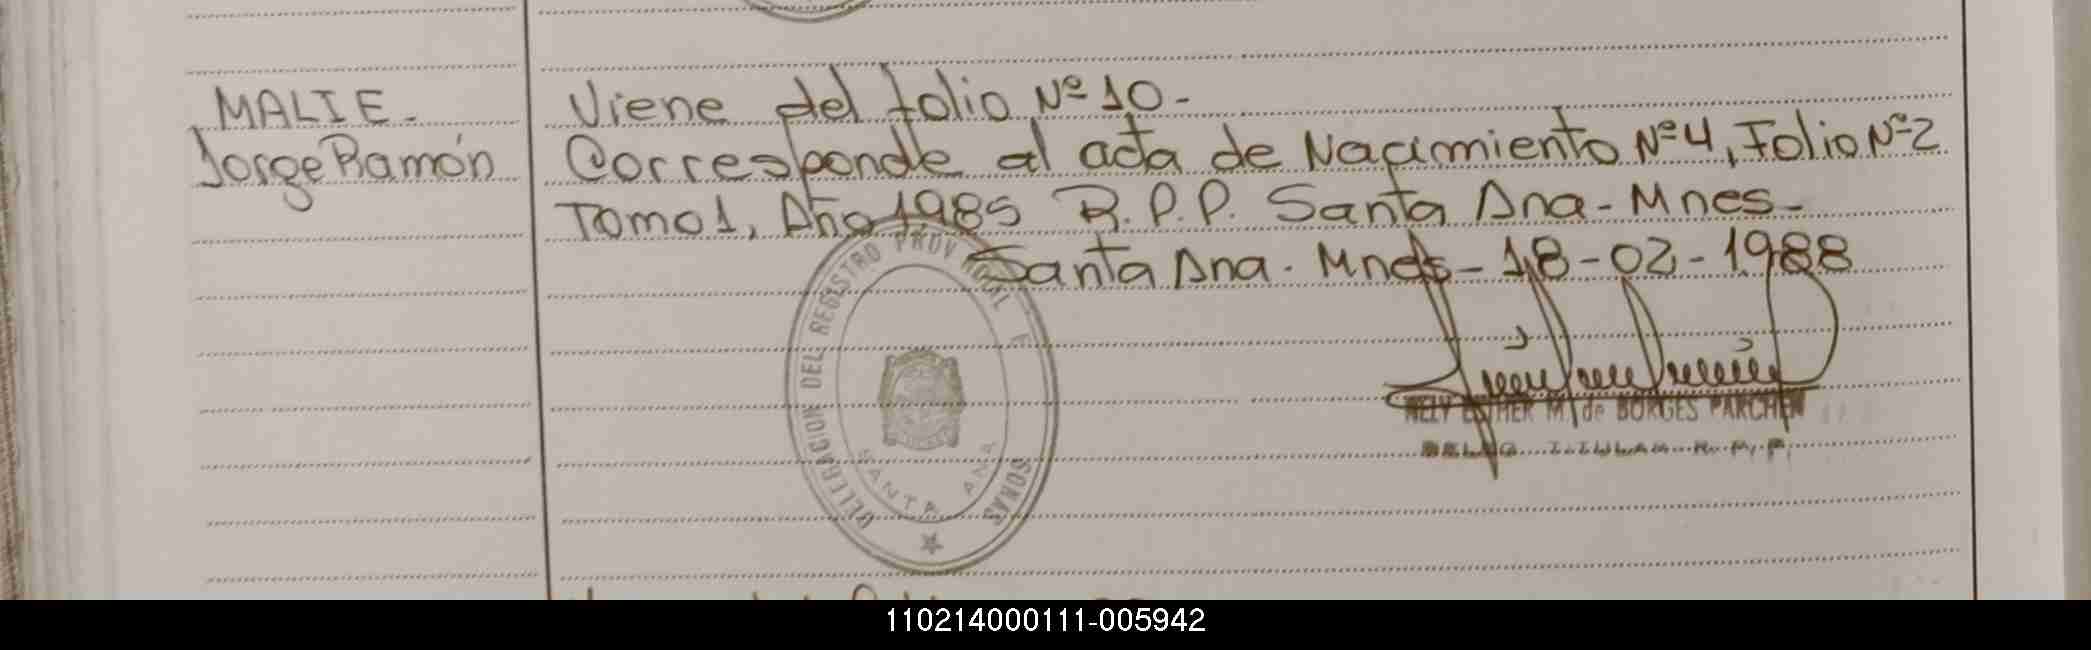 MALIE-
Jorge Ramón
Viene del folio Nº 10-
Corresponde al acta de Nacimiento Nº 4, Folio Nº 2
Tomo 1, Año 1985 R.P.P. Santa Ana - Mnes-
Santa Ana - Mnes - 18-02-1988
DELEGACION DEL REGISTRO PROV
SANTA ANA
NELY ESTHER M. de BORGES PARCHEN
TITULAR R. P. P.
110214000111-005942